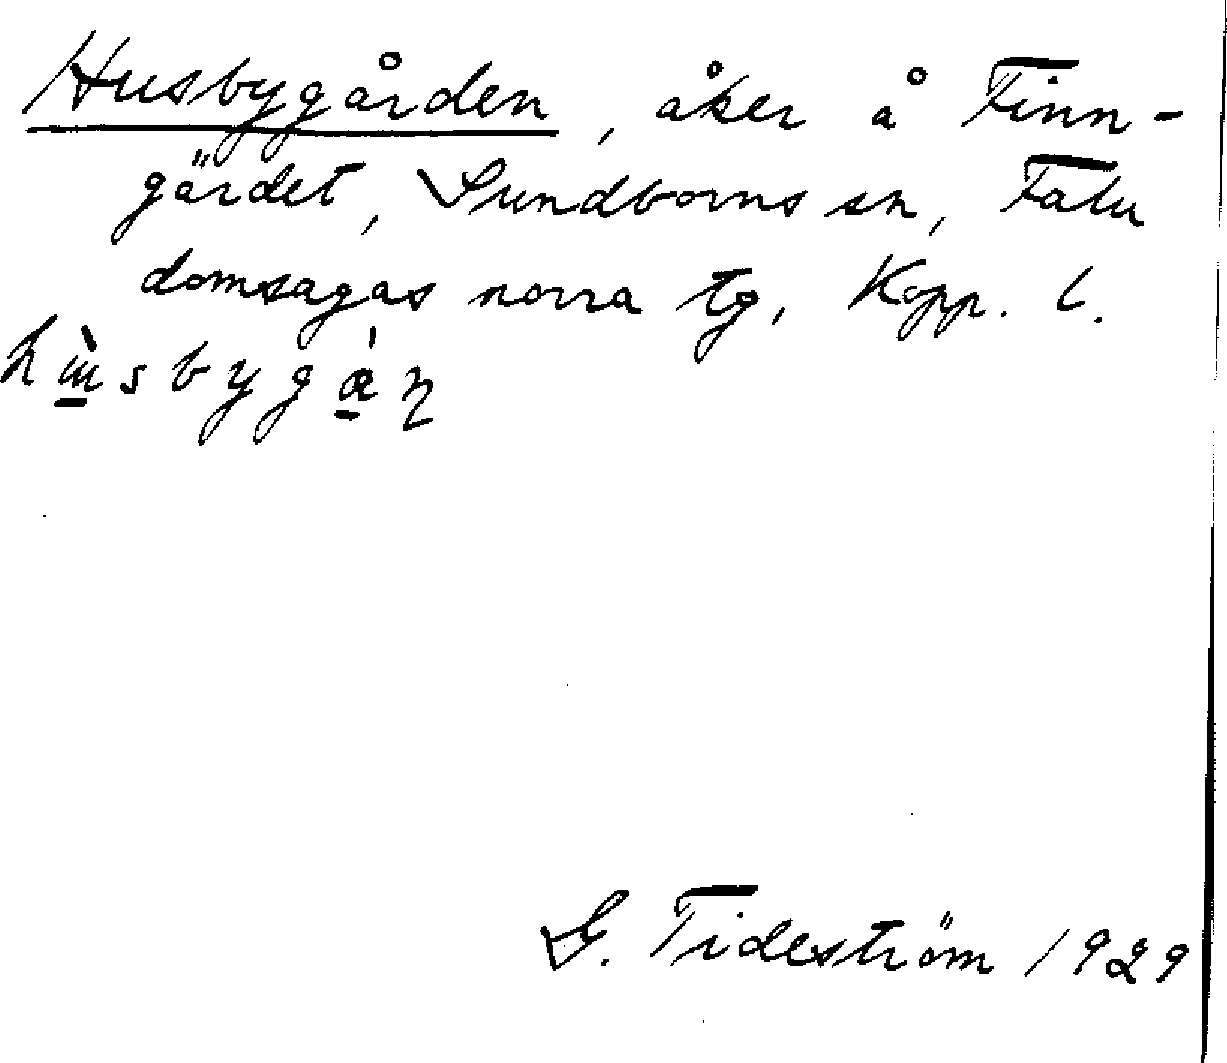 Husbygården, åker å Finn-
gärdet, Sundborns sn, Falu
domsagas norra tg, Kopp. l.
G. Tideström 1929